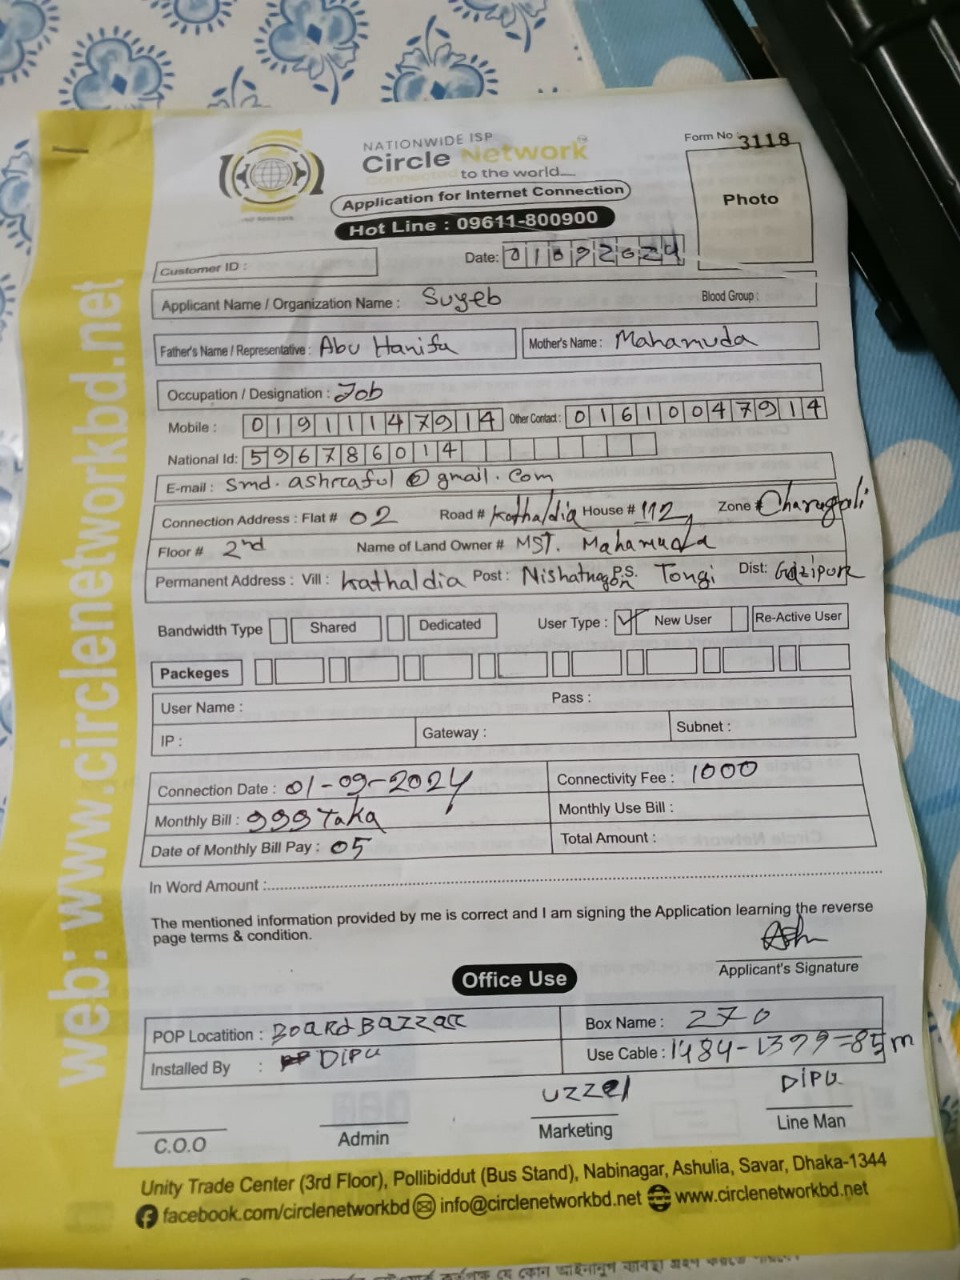 NATIONWIDE ISP
Circle Network
to the world.....
Form No : 3118
Photo
Application for Internet Connection
Hot Line : 09611-800900
Date: 01092024
Customer ID :
Applicant Name / Organization Name : Suyeb Blood Group :
Father's Name / Representative : Abu Hanifa Mother's Name : Mahamuda
Occupation / Designation : Job
Mobile : 01911147914 Other Contact : 01610047914
National Id: 596786014
E-mail : smd.ashraful@gmail.com
Connection Address : Flat # 02 Road # Kathaldia House # 112 Zone # Charugali
Floor # 2nd Name of Land Owner # MST. Mahamuda
Permanent Address : Vill : Kathaldia Post : Nishatnagor P.S. Tongi Dist: Gazipur
Bandwidth Type Shared Dedicated User Type : ✓ New User Re-Active User
Packeges
User Name : Pass :
IP : Gateway : Subnet :
Connection Date : 01-09-2024 Connectivity Fee : 1000
Monthly Bill : 999 Taka Monthly Use Bill :
Date of Monthly Bill Pay : 05 Total Amount :
In Word Amount :
The mentioned information provided by me is correct and I am signing the Application learning the reverse
page terms & condition.
Ash
Applicant's Signature
Office Use
POP Locatition : Board Bazzar Box Name : 270
Installed By : DIPU Use Cable : 1484-1399=85m
UZZel DIPU
C.O.O Admin Marketing Line Man
Unity Trade Center (3rd Floor), Pollibiddut (Bus Stand), Nabinagar, Ashulia, Savar, Dhaka-1344
facebook.com/circlenetworkbd info@circlenetworkbd.net www.circlenetworkbd.net
web: www.circlenetworkbd.net